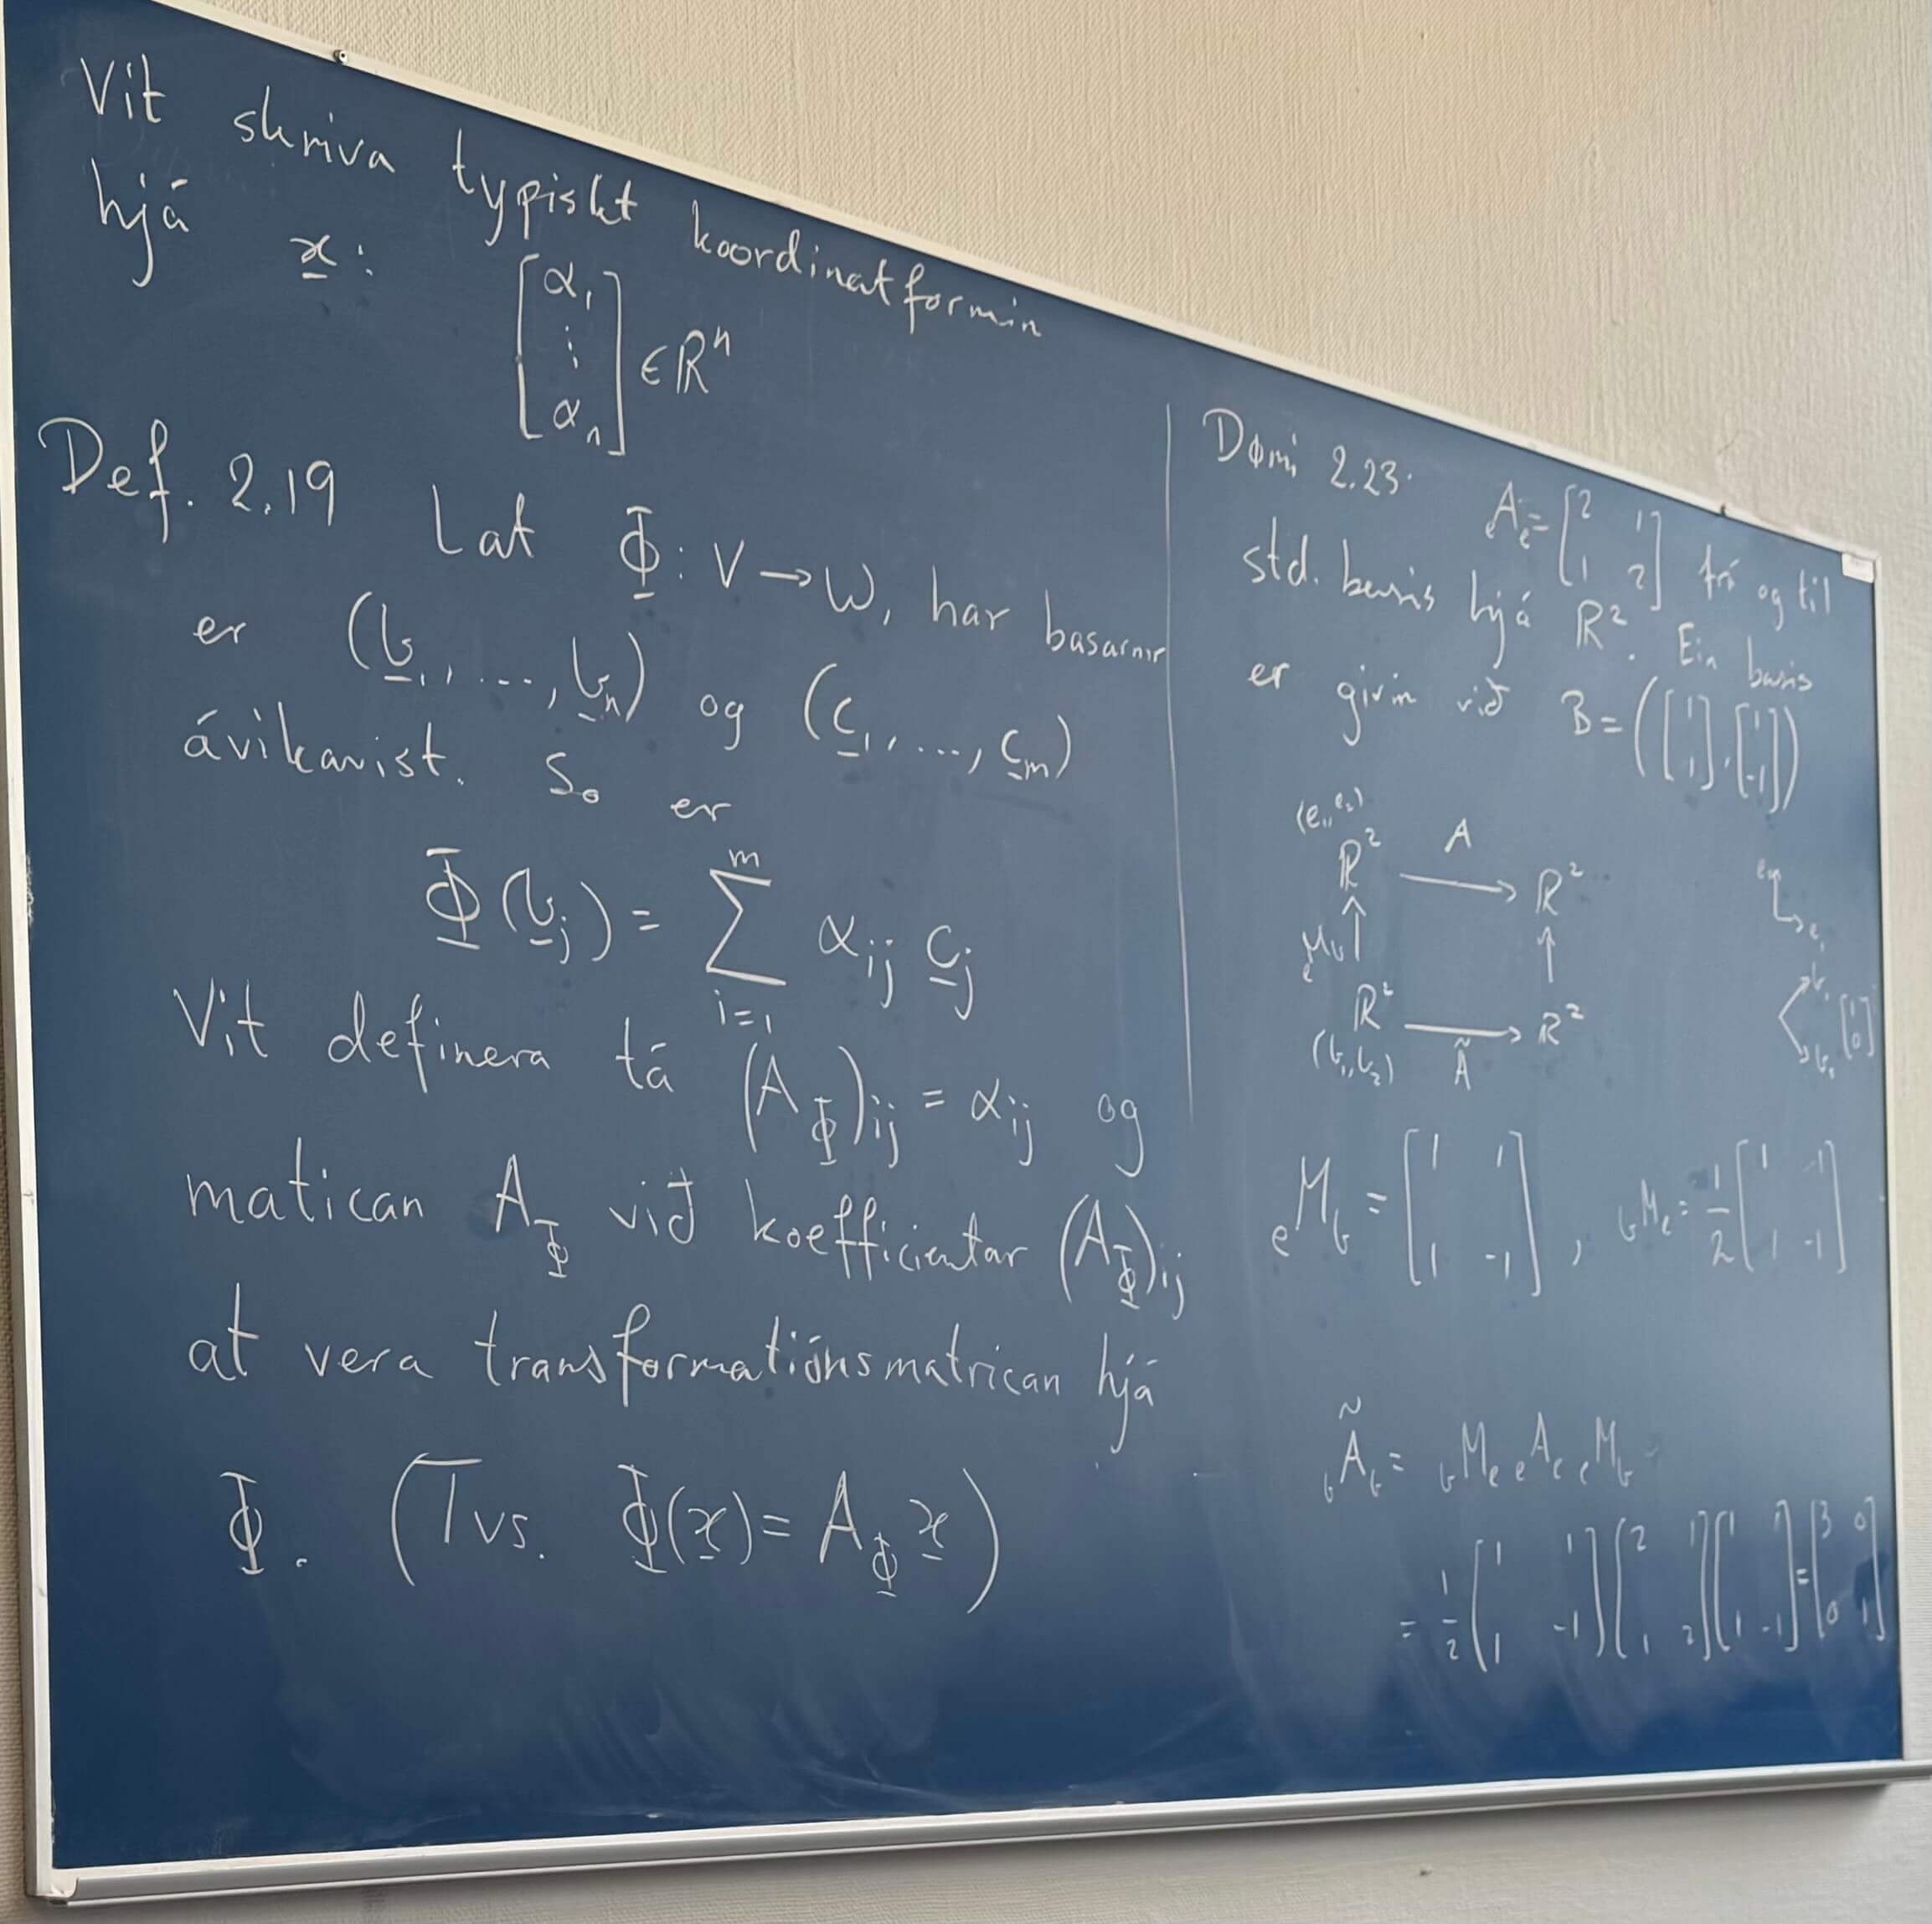 Vit skriva typiskt koordinatformin
hjá x:
[α₁ ⋮ αₙ] ∈ ℝⁿ
Def. 2.19 Lat Φ: V → W, har basarnir
er (b₁, ..., bₙ) og (c₁, ..., cₘ)
ávikavist. So er
Φ(bⱼ) = ∑_{i=1}^{m} αᵢⱼ cⱼ
Vit definera tá (A_Φ)ᵢⱼ = αᵢⱼ og
matican A_Φ við koefficientar (A_Φ)ᵢⱼ
at vera transformatiónsmatrican hjá
Φ. (Tvs. Φ(x) = A_Φ x)
Dømi 2.23. ₑAₑ = [2 1; 1 2] frá og til
std. basis hjá ℝ². Ein basis
er givin við B = ([1; 1], [1; -1])
(e₁, e₂)
ℝ² → A ℝ²
ₑM_b ↑ ↑
ℝ² → ℝ²
(b₁, b₂) Ã
e₁
b₁
[1; 0]
ₑM_b = [1 1; 1 -1], _bMₑ = 1/2 [1 -1; 1 -1]
_bÃ_b = _bMₑ ₑAₑ ₑM_b
= 1/2 [1 1; 1 -1] [2 1; 1 2] [1 1; 1 -1] = [3 0; 0 1]